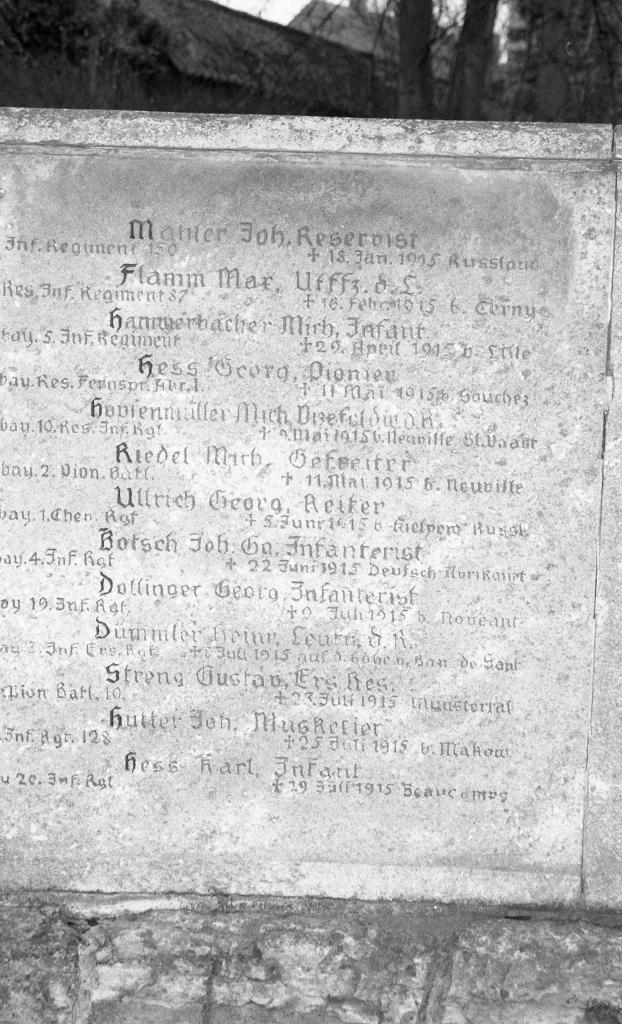 Mahler Joh. Reservist
Inf. Regiment 150 ✝ 18. Jan. 1915 Russland
Flamm Max, Utffz. d. L.
Res. Inf. Regiment 87 ✝ 16. Febr. 1915 b. Cerny
Hammerbacher Mich, Infant
bay. 5. Inf. Regiment ✝ 29. April 1915 b. Lille
Hess Georg, Pionier
bay. Res. Fernspr. Abt. 1. ✝ 11 Mai 1915 b. Souchez
Hopfenmüller Mich, d. R.
bay. 10. Res. Inf. Rgt. ✝ 9. Mai 1915 b. Neuville St. Vaast
Riedel Mich, Gefreiter
bay. 2. Pion. Batl. ✝ 11. Mai 1915 b. Neuville
Ullrich Georg, Reiter
bay. 1. Chev. Rgt ✝ 5. Juni 1915 b Russl.
Botsch Joh. Gg. Infanterist
bay. 4. Inf. Rgt ✝ 22 Juni 1915 Deutsch Avrikourt
Dollinger Georg, Infanterist
bay 19. Inf. Rgt. ✝ 9. Juli 1915 b. Noveant
Dümmler Heinr, Leutn, d R.
bay 2. Inf Ers. Rgt ✝ Juli 1915 auf d. Höhe v. Ban de Sapt
Streng Gustav, Ers. Res.
Pion Batl. 10. ✝ 23 Juli 1915 Munstertal
Hutter Joh, Musketier
Inf. Rgt. 128 ✝ 25 Juli 1915 b. Makow
Hess Karl, Infant
20. Inf. Rgt ✝ 29 Juli 1915 Beaucamps